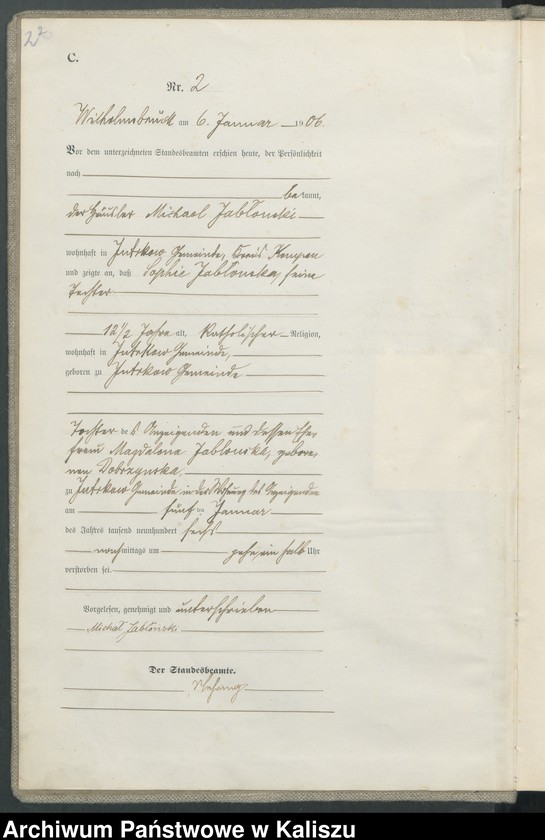 22
C.
Nr. 2
Wilhelmsbruck am 6. Januar 1906.
Vor dem unterzeichneten Standesbeamten erschien heute, der Persönlichkeit
nach
bekannt,
der Häusler Michael Jabłonski
wohnhaft in Gemeinde, Kreis Kempen
und zeigte an, daß Sophie Jabłonska, seine
Tochter
12 1/2 Jahre alt, katholischer Religion,
wohnhaft in Gemeinde,
geboren zu Gemeinde
Tochter des Anzeigenden und dessen Ehe-
frau Magdalena Jabłonska, gebore-
nen Dobrzynska
zu Gemeinde in der Wohnung des Anzeigenden
am fünf ten Januar
des Jahres tausend neunhundert sechs
nachmittags um ein halb Uhr
verstorben sei.
Vorgelesen, genehmigt und unterschrieben
Michał Jabłonski
Der Standesbeamte.
Archiwum Państwowe w Kaliszu